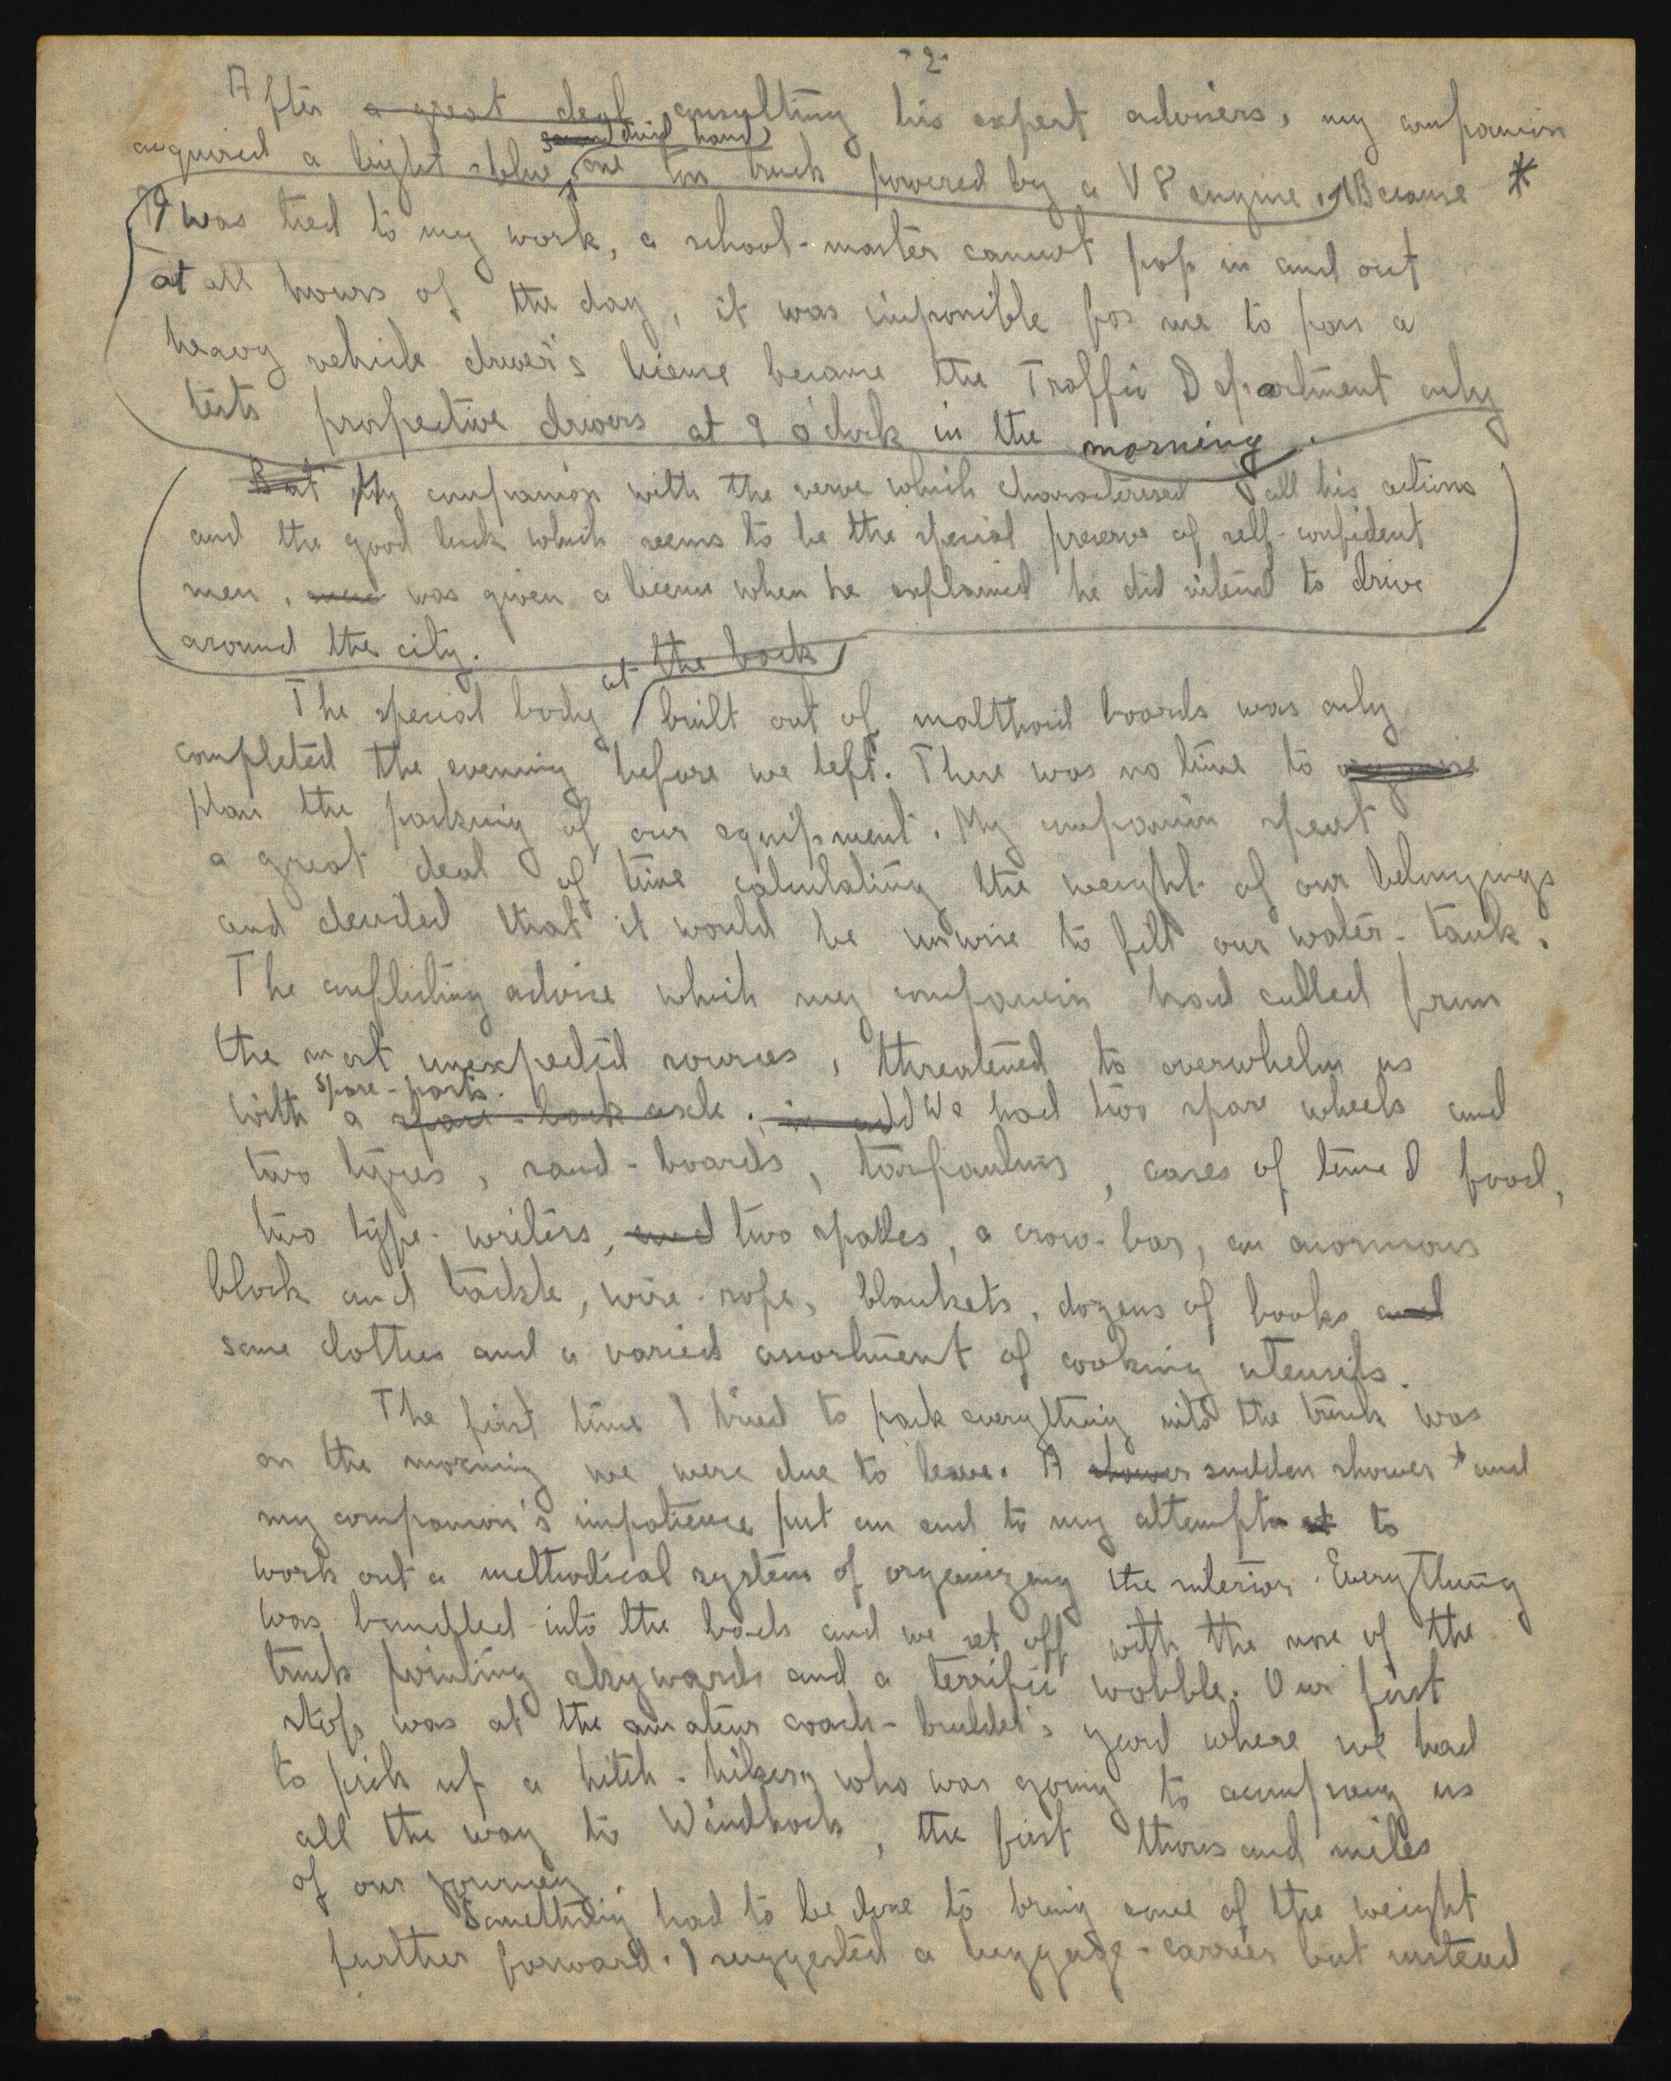 - 2 -
After a great deal consulting his expert advisers, my companion
second third hand
acquired a bright blue, one ton truck powered by a V8 engine. Because *
I was tied to my work, a school-master cannot pop in and out
at all hours of the day, it was impossible for me to pass a
heavy vehicle driver's license because the Traffic Department only
tests prospective drivers at 9 o'clock in the morning.
But My companion with the verve which characterised all his actions
and the good luck which seems to be the special preserve of self-confident
men, was given a license when he explained he did intend to drive
around the city.
at the back
The special body built out of malthoid boards was only
completed the evening before we left. There was no time to organise
plan the packing of our equipment. My companion spent
a great deal of time calculating the weight of our belongings
and decided that it would be unwise to fill our water-tank.
The conflicting advice which my companion had culled from
the most unexpected sources, threatened to overwhelm us
spare-parts.
with a spare-back axle. in add We had two spare wheels and
two tyres, sand-boards, tarpaulins, cases of tinned food,
two type-writers, and two spades, a crow-bar, an enormous
block and tackle, wire-rope, blankets, dozens of books and
some clothes and a varied assortment of cooking utensils.
The first time I tried to pack everything into the truck was
on the morning we were due to leave. A shower sudden shower and
my companion's impatience put an end to my attempts at to
work out a methodical system of organizing the interior. Everything
was bundled into the back and we set off with the nose of the
truck pointing skywards and a terrific wobble. Our first
stop was at the amateur coach-builder's yard where we had
to pick up a hitch-hiker who was going to accompany us
all the way to Windhoek, the first thousand miles
of our journey.
Something had to be done to bring some of the weight
further forward. I suggested a luggage-carrier but instead